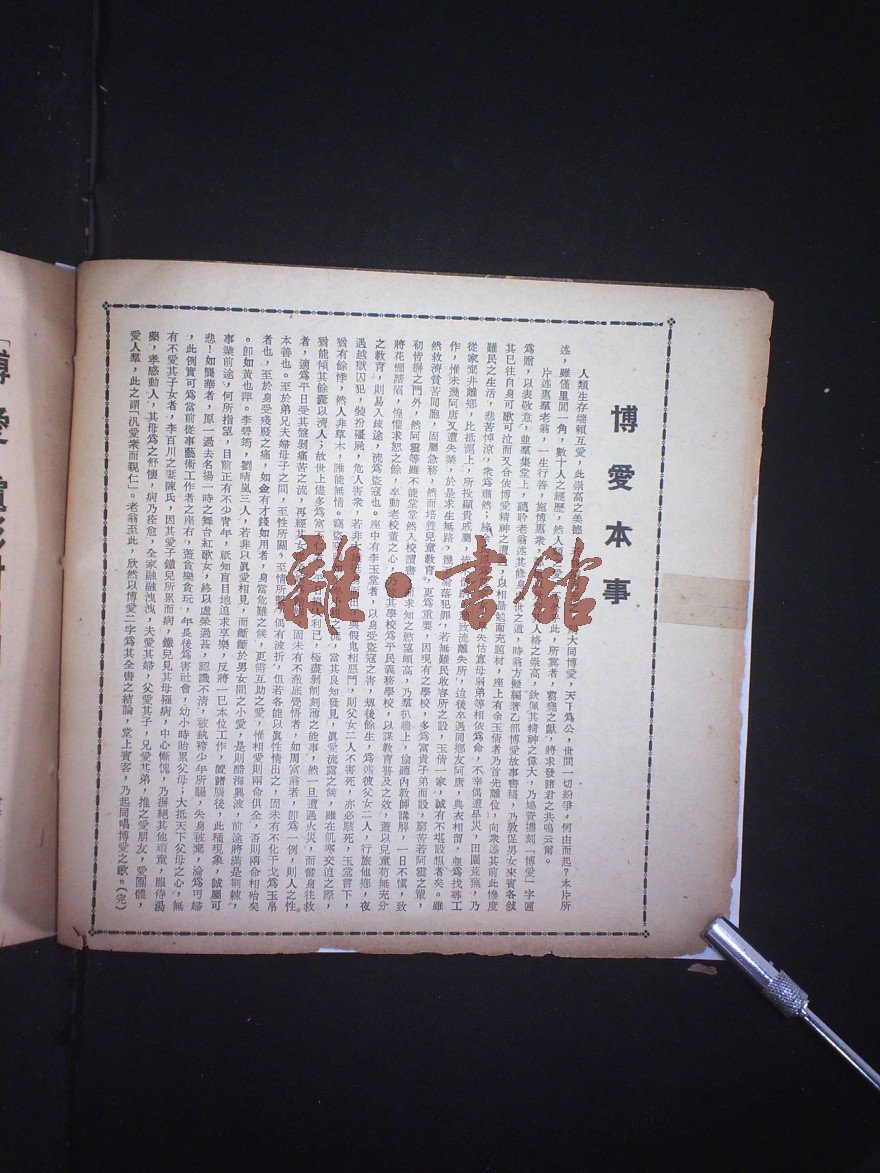 博愛本事
人類生存端賴互愛，此崇高之美德，大同博愛，天下為公，世間一切紛爭，何由而起？本片所
述，雖僅里閭一角，數十人之經歷，然人類此，所冀者，芻蕘之獻，將求發諸君之共鳴云爾。
片述惠羣老翁，一生行善，施博惠衆，人格之崇高，欽佩其精神之偉大，乃鳩資撰刻「博愛」字匾
為贈，以表敬意，並羣集堂上，聽聆老翁述其修身處世之道，時翁方擬編著乙部博愛故事書稿，乃敦促男女來賓各敍
其已往自身可歌可泣而又合依博愛精神之遭遇，以相勗勉而充題材，座上有余玉倩者乃首先離位，向衆述其前此慘度
難民之生活，悲苦悽涼，衆為肅然；緣失怙寡母弱弟等相依為命，不幸偶遭旱災，田園荒蕪，乃
從家鄉非離鄉，比抵滬上，所投顯貴戚屬，致流離失所，迫後幸遇同鄉友阿唐，典衣相留，亟為找尋工
作，惟未幾阿唐又遭失業，於是求生無路，幾落犯罪，若無難民收容所之設，玉倩一家，誠有不堪設想者矣。雖
然救濟貧苦同胞，固屬急務，然而培養兒童教育，更為重要，因現有之學校，多為富貴子弟而設，窮苦若阿雲之輩，
初皆摒之門外，然阿雲等雖不能堂堂然入校讀書，而求知之慾望頗高，乃羣扒牆上，偷聽內教師講解，一日不慎，致
將花棚踏陷，惶懼求恕之餘，卒動老校董之心，乃其學校為平民義務學校，以謀教育普及之效，蓋以兒童苟無充分
之教育，則易入歧途，流為盜寇也。座中有李玉堂者，以身受盜寇之害，規後餘生，為述彼父女二人，行旅他鄉，夜
遇越獄囚犯，裝扮殭屍，危人害衆，若非大與假鬼相惡鬥，則父女二人不害死，亦必駭死，玉堂言下，
猶有餘悸，然人非草木，誰能無情。竊盜之流，當其良知發見，眞愛流露之候，雖在飢寒交迫之際，
猶能傾其餘囊以濟人；故世上儘多為富不仁利己，極盡剝削刻薄之能事，然一旦遭遇火災，而奮身往救
者，適為平日受其盤剝痛苦之流，再經其女固未有不澈底覺悟者，如周富翁者，卽為一例，則人之性
本善也。至於弟兄夫婦母子之間，至性所關，至情所繫，偶有波折，但若各能以眞性情出之，固未有不化干戈為玉帛
者也，至於身受殘廢之痛，如金有才錢如用者，身當危難之候，更需互助之愛，惟相愛則兩命俱全，否則兩命相殆矣
。卽如黃也犀。李碧筠，劉晴嵐三人，若非以眞愛相見，而斷斷於男女間之小愛，是則醋海興波，前途將滿是荆棘，
事業前途，何所指望，目前正有不少青年，祇知盲目地追求享樂，反將一己本位工作，置諸腦後，此種現象，誠屬可
悲！如龔華者，原一過去名揚一時之舞台紅歌女，終以虛榮過甚，認識不清，被紈袴少年所騙，失身被棄，淪為丐婦
，此例實可為當前從事藝術工作者之座右，蓋貪樂貪玩，年長後為害社會，幼小時貽累父母；大抵天下父母之心，無
有不愛其子女者，李百川之妻陳氏，因其愛子鐵兒所累而病，鐵兒見其母罹病，中心慚愧，乃摒絕其他頑童，服侍湯
藥，孝感動人，其母為之舒懷，病乃痊愈，全家融融洩洩，夫愛其婦，父愛其子，兄愛其弟，推之愛朋友，愛團體，
愛人羣，此之謂「汎愛衆而親仁」。老翁至此，欣然以博愛二字為其全書之結論，堂上賓客，乃起同唱博愛之歌。（完）
雜·書館
「博愛